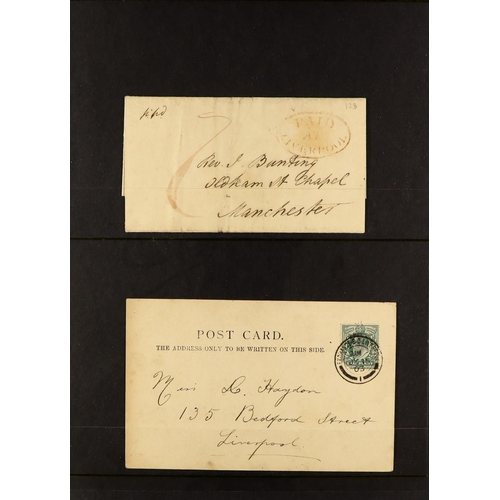 p.pd
7
PAID
AT
LIVERPOOL
Rev. J. Bunting
Oldham St Chapel
Manchester
POST CARD.
THE ADDRESS ONLY TO BE WRITTEN ON THIS SIDE.
Miss D. Haydon
135 Bedford Street
Liverpool.